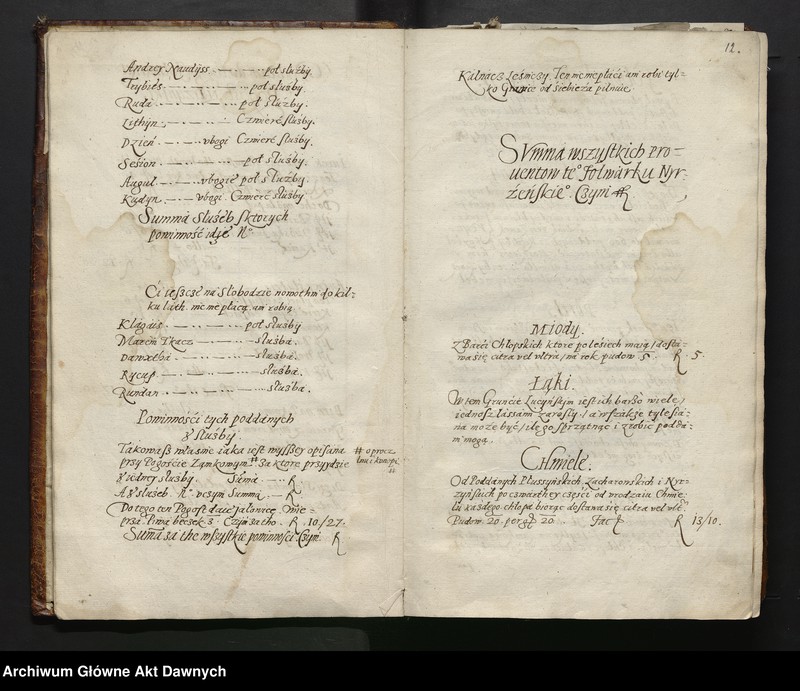 Andrzey Naudyss — — — poł służby.
Trybies — — — poł służby.
Ruda — — — poł służby.
Lithyn — — — Czwierć służby.
Dzień — — — vbogi Czwierć służby.
Sesion — — — poł służby.
Augul — — vbogie poł służby.
Kudyn — — vbogi Czwierć służby.
Summa Służeb sktorych
powinność idzie N°
Ci ieszcze na Słobodzie nowothni do kil-
ku lath nic nie płacą ani robią.
Klagais — — — poł służby
Marcin Tkacz — — — służba.
— — — służba.
Rycup — — — służba.
Rundan — — — służba.
Powinności tych poddanych
z służby.
Takowasz własnie iaka iest wyszszey opisana
przy Pogoście Zamkowym # Za ktore przyydzie
# oprocz
z iedney służby. Suma — R
A z służeb N° vczyni Summa — R
Do tego ten Pogost daie Jałowicę Wie-
prza. Piwa beczek 3. Czyni za tho. R 10/27.
Suma za the wszystkie powinności Czyni R
12.
Kalnacz Leśniczy. Ten nic nie płaci ani robi tyl-
ko Granice od Siebieża pilnuie.
Summa wszystkich Pro-
uentow te° Folwarku Nyr-
zeńskie°. Czyni R
Miody.
Z Barci Chłopskich ktore po lesiech maią / dosta-
wa się citra vel vltra / na rok pudow 5. R 5.
Łąki.
W tem Gruncie Lucyńskim iest ich barzo wiele /
iedno sz lassam zarosły / a wszakże tyle sia-
na może być / ile go sprzątnąć i zrobić podda-
ni mogą.
Chmiele.
Od Poddanych Płussyńskich, Zacharonskich i Nyr-
zyńskich po czwarthey części od vrodzaiu Chmie-
lu każdego chłopa biorąc dostawa się citra vel vltr
Pudow 20. per g° 20 Fac R 13/10.
Archiwum Główne Akt Dawnych